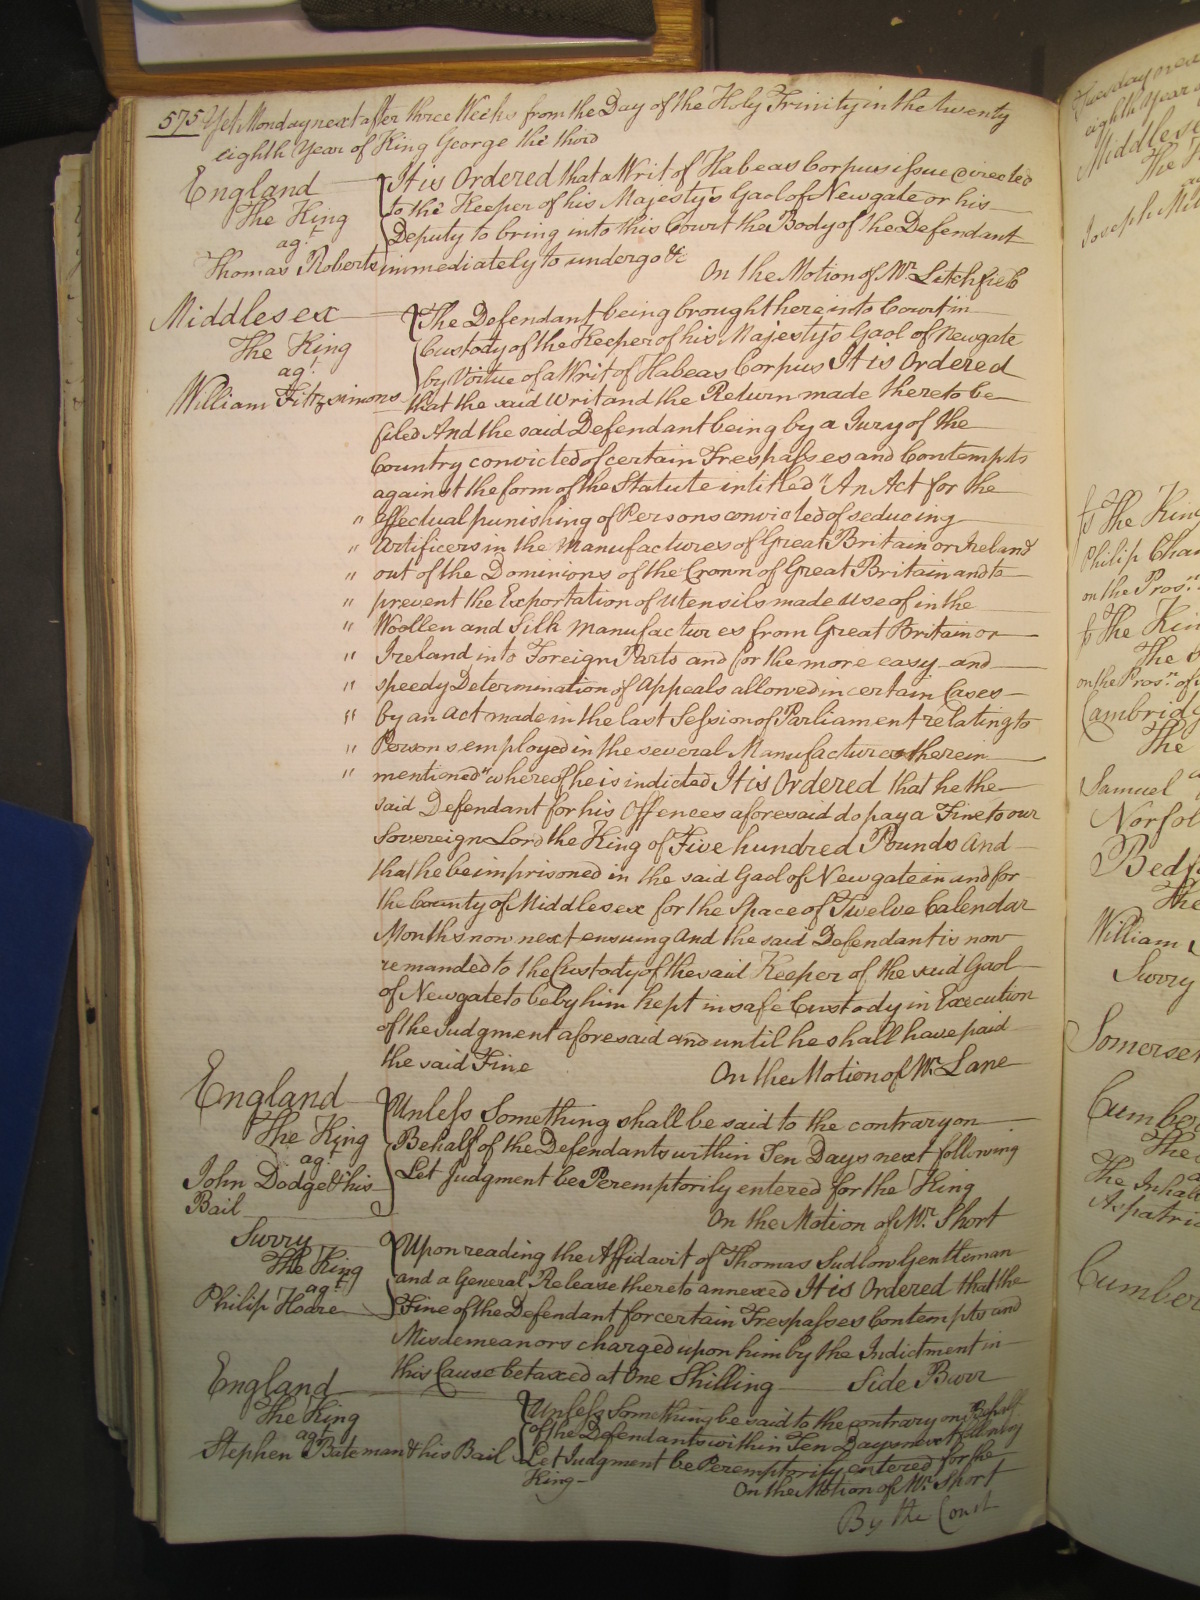 575 Yet Monday next after three Weeks from the Day of the Holy Trinity in the twenty
eighth Year of King George the third
England
The King
agt
Thomas Roberts
It is Ordered that a Writ of Habeas Corpus issue directed
to the Keeper of his Majesty's Gaol of Newgate or his
Deputy to bring into this Court the Body of the Defendant
immediately to undergo &c
On the Motion of Mr. Litchfield
Middlesex
The King
agt
William Fitzsimons
The Defendant being brought here into Court in
Custody of the Keeper of his Majesty's Gaol of Newgate
by Virtue of a Writ of Habeas Corpus It is Ordered
that the said Writ and the Return made thereto be
filed And the said Defendant being by a Jury of the
Country convicted of certain Trespasses and Contempts
against the form of the Statute intitled "An Act for the
" effectual punishing of Persons convicted of seducing
" Artificers in the Manufactures of Great Britain or Ireland
" out of the Dominions of the Crown of Great Britain and to
" prevent the Exportation of utensils made use of in the
" Woollen and Silk Manufactures from Great Britain or
" Ireland into Foreign Parts and for the more easy and
" speedy Determination of Appeals allowed in certain Cases
" by an Act made in the last Session of Parliament relating to
" Persons employed in the several Manufactures therein
" mentioned" whereof he is indicted It is Ordered that he the
said Defendant for his Offences aforesaid do pay a Fine to our
Sovereign Lord the King of Five hundred Pounds And
that he be imprisoned in the said Gaol of Newgate in and for
the County of Middlesex for the Space of Twelve Calendar
Months now next ensuing And the said Defendant is now
remanded to the Custody of the said Keeper of the said Gaol
of Newgate to be by him kept in safe Custody in Execution
of the Judgment aforesaid and until he shall have paid
the said Fine On the Motion of Mr. Lane
England
The King
agt
John Dodge & his
Bail
Unless Something shall be said to the contrary on
Behalf of the Defendants within Ten Days next following
Let Judgment be Peremptorily entered for the King
On the Motion of Mr. Short
Surry
The King
agt
Philip Hoare
Upon reading the Affidavit of Thomas Sudlow Gentleman
and a General Release thereto annexed It is Ordered that the
Fine of the Defendant for certain Trespasses Contempts and
Misdemeanors charged upon him by the Indictment in
this Cause be taxed at One Shilling Side Barr
England
The King
agt
Stephen Bateman & his Bail
Unless Something be said to the contrary on Behalf
of the Defendants within Ten Days next following
Let Judgment be Peremptorily entered for the
King
On the Motion of Mr. Short
By the Court
Tuesday next
eighth Year
Middlesex
The
Joseph
The King
Philip
on the Pros.n
The
The
on the Pros.n of
The
Samuel
Norfol
Bedf
The
William
Surry
Somerset
Cumber
The
The Inhab
Aspatri
Cumber